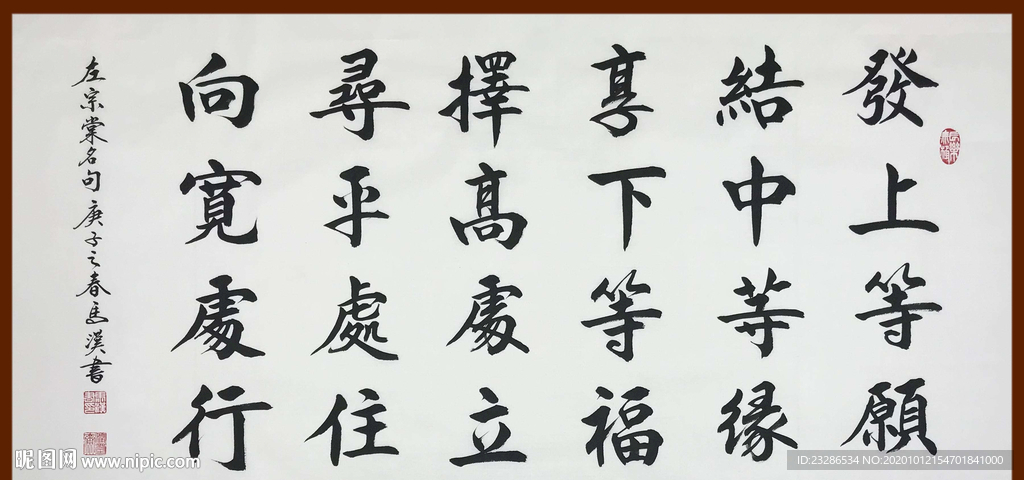 發上等願
結中等緣
享下等福
擇高處立
尋平處住
向寬處行
左宗棠名句庚子之春馬漢書
昵图网 www.nipic.com
ID:23286534 NO:20201012154701841000